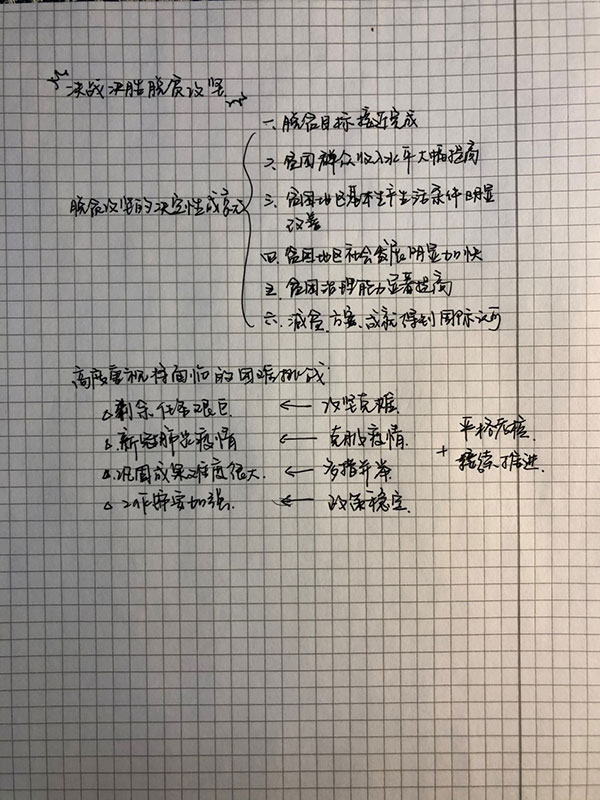 决战决胜脱贫攻坚
脱贫攻坚的决定性成就
一、脱贫目标接近完成
二、贫困群众收入水平大幅提高
三、贫困地区基本生产生活条件明显
改善
四、贫困地区社会发展明显加快
五、贫困治理能力显著提高
六、减贫方案、成就得到国际认可
高度重视将面临的困难挑战
剩余任务艰巨 ← 攻坚克难
新冠肺炎疫情 ← 克服疫情
巩固成果难度很大 ← 多措并举
工作需要加强 ← 政策稳定
+ 严格考核
接续推进